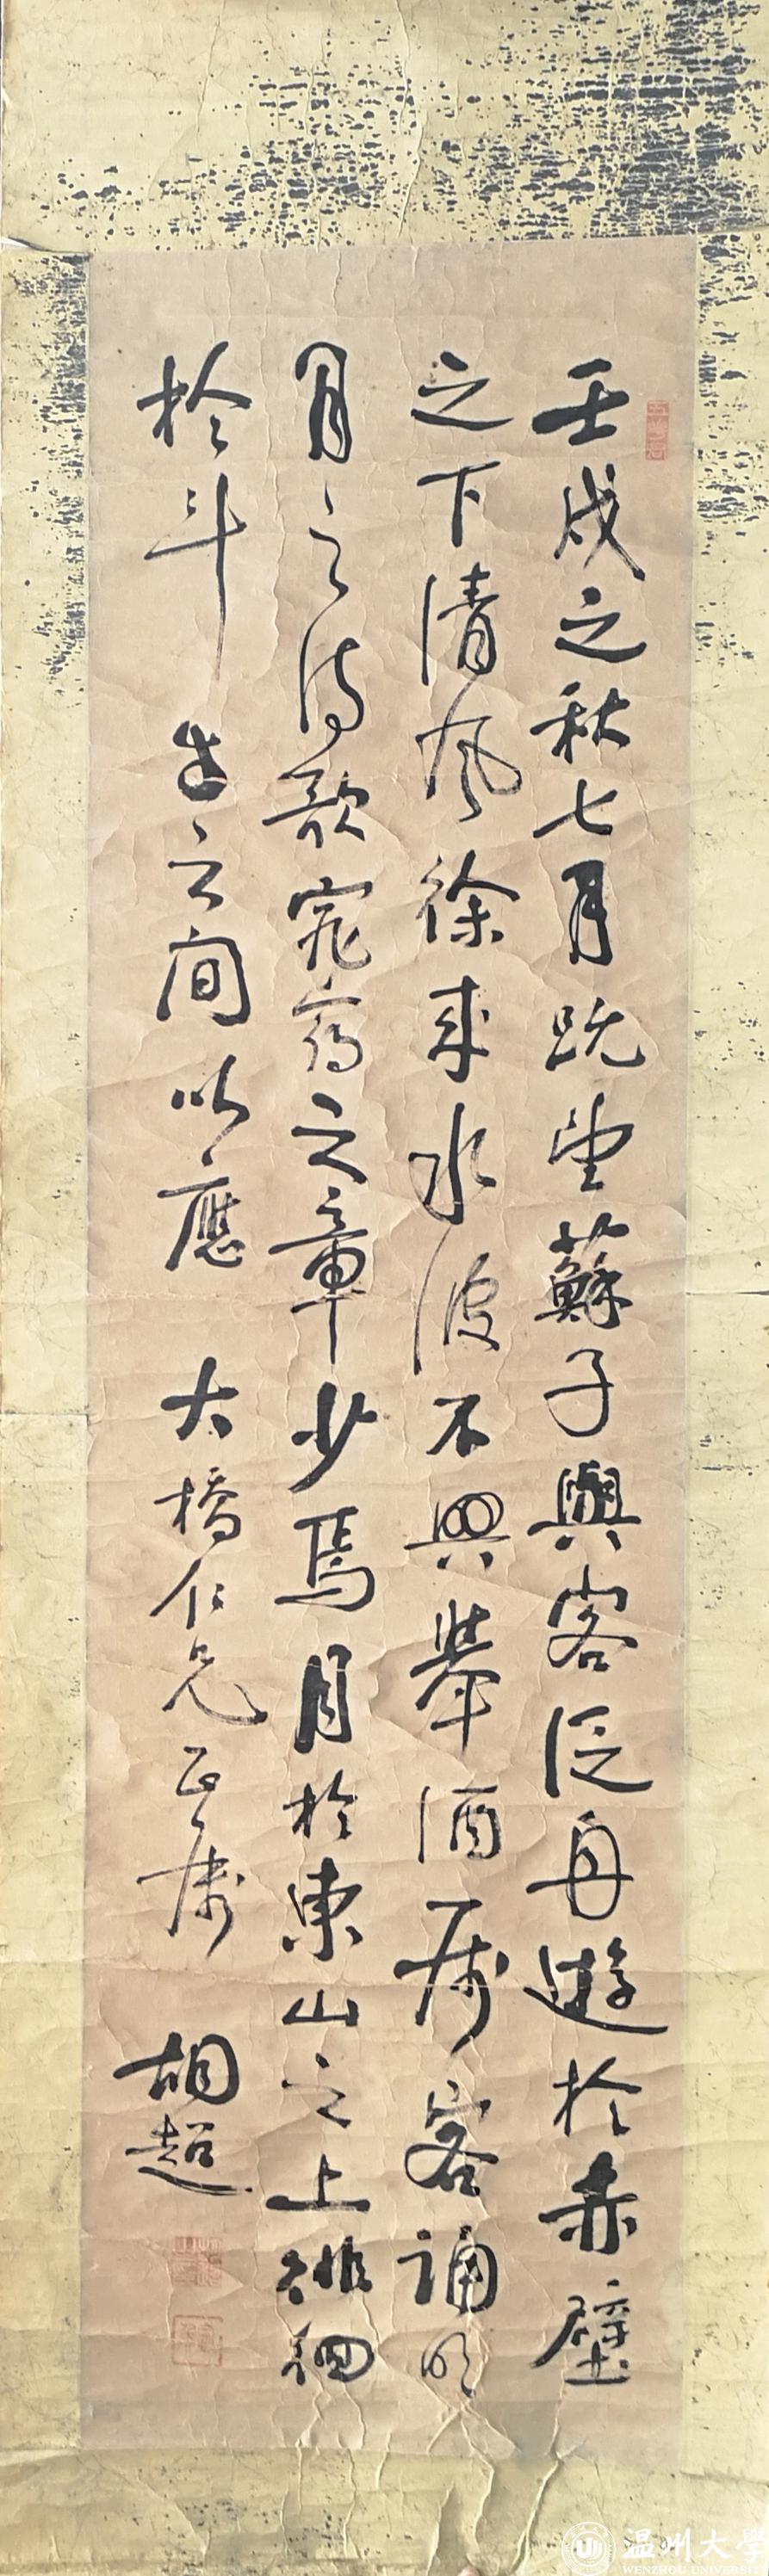 壬戌之秋七月既望蘇子與客泛舟遊於赤壁
之下清風徐來水波不興舉酒屬客誦明
月之詩歌窈窕之章少焉月於東山之上徘徊
於斗牛之間以應
大橋仁兄正屬
胡超
温州大學
WENZHOU UNIVERSITY